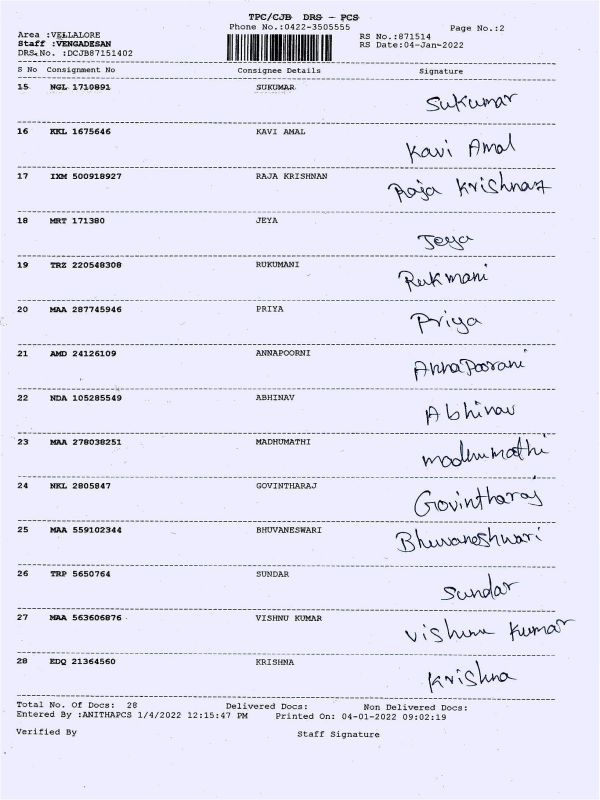 TPC/CJB DRS - PCS
Phone No.:0422-3505555
Page No.:2
Area :VELLALORE
Staff :VENGADESAN
DRS No. :DCJB87151402
RS No.:871514
RS Date:04-Jan-2022
S No Consignment No Consignee Details Signature
15 NGL 1710891 SUKUMAR Sukumar
16 KKL 1675646 KAVI AMAL Kavi Amal
17 IXM 500918927 RAJA KRISHNAN Raja Krishnan
18 MRT 171380 JEYA Jeya
19 TRZ 220548308 RUKUMANI Rukmani
20 MAA 287745946 PRIYA Priya
21 AMD 24126109 ANNAPOORNI AnnaPoorani
22 NDA 105285549 ABHINAV Abhinav
23 MAA 278038251 MADHUMATHI madhumathi
24 NKL 2805847 GOVINTHARAJ Govintharaj
25 MAA 559102344 BHUVANESWARI Bhuvaneshwari
26 TRP 5650764 SUNDAR Sundar
27 MAA 563606876 VISHNU KUMAR Vishnu Kumar
28 EDQ 21364560 KRISHNA Krishna
Total No. Of Docs: 28 Delivered Docs: Non Delivered Docs:
Entered By :ANITHAPCS 1/4/2022 12:15:47 PM Printed On: 04-01-2022 09:02:19
Verified By Staff Signature